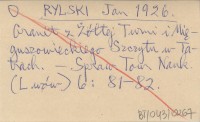 RYLSKI Jan 1926.
Granit z Żółtej Turni i Mię-
guszowieckiego Szczytu w Ta-
trach. — Spraw. Tow. Nauk.
(Lwów) 6: 81-82.